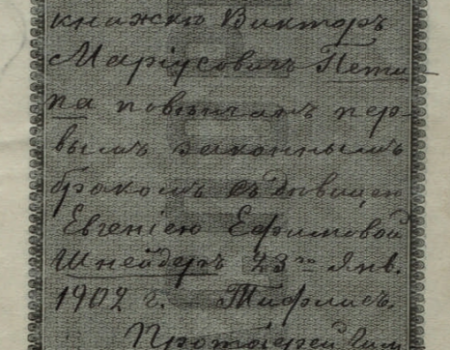 книжкѣ Викторъ
Маріусовичъ Пети-
па повѣнчанъ пер-
вымъ законнымъ
бракомъ съ дѣвицею
Евгеніею Ефимовой
Шнейдеръ 23го Янв.
1902 г. Тифлисъ.
Протоіерей